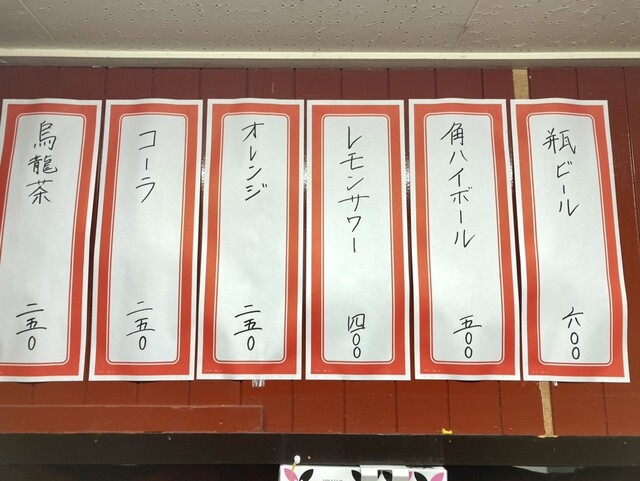 瓶ビール
六〇〇
角ハイボール
五〇〇
レモンサワー
四〇〇
オレンジ
二五〇
コーラ
二五〇
烏龍茶
二五〇